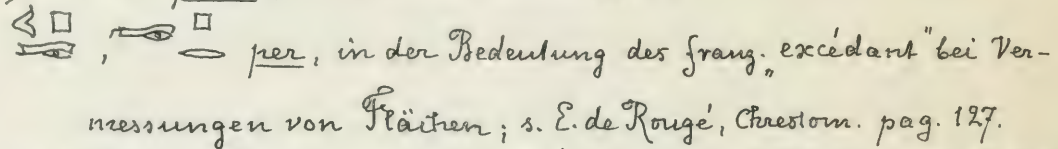 , per, in der Bedeutung des franz. „excédant" bei Ver-
messungen von Flächen; s. E. de Rougé, Chrestom. pag. 127.